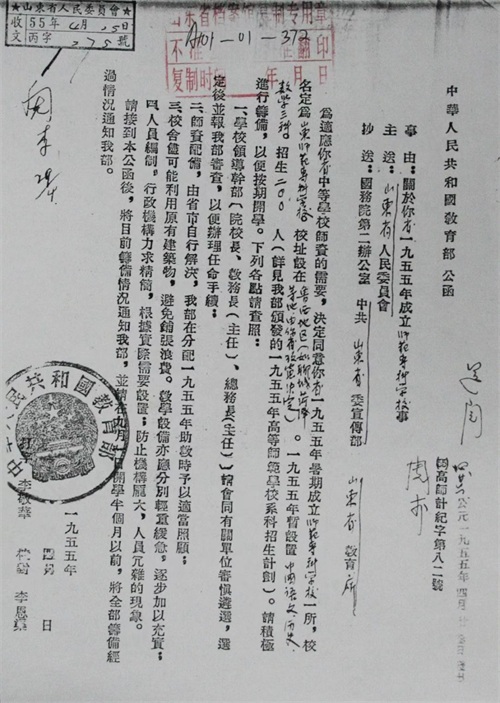 中華人民共和國敎育部 公函
事由：關於你省一九五五年成立師範專科學校事
主送：山東省人民委員會
抄送：國務院第二辦公室 中共山東省委宣傳部
山東省敎育所
爲適應你省中等學校師資的需要，決定同意你省一九五五年暑期成立師範專科學校一所，校
名定爲山東師範專科學校 校址設在
一九五五年暫設置中國語文、歷史
敎學三科。招生二〇〇人（詳見我部頒發的一九五五年高等師範學校系科招生計劃）。請積極
進行籌備，以便按期開學。下列各點請查照：
一、學校領導幹部（院校長、敎務長（主任）、總務長（主任））請會同有關單位審愼遴選，選
定後並報我部審查，以便辦理任命手續；
二、師資配備，由省市自行解決，我部在分配一九五五年助敎時予以適當照顧；
三、校舍儘可能利用原有建築物，避免鋪張浪費。敎學設備亦應分別輕重緩急，逐步加以充實；
四、人員編制，行政機構力求精簡，根據實際需要設置；防止機構龐大，人員冗雜的現象。
請接到本公函後，將目前籌備情況通知我部，並請在九月一日開學半個月以前，將全部籌備經
過情況通知我部。
一九五五年
日
山東省人民委員會
收文
55年4月5日
丙字275號
A101-01-372
不准翻印
复制时间 年 月 日
共和國敎育部